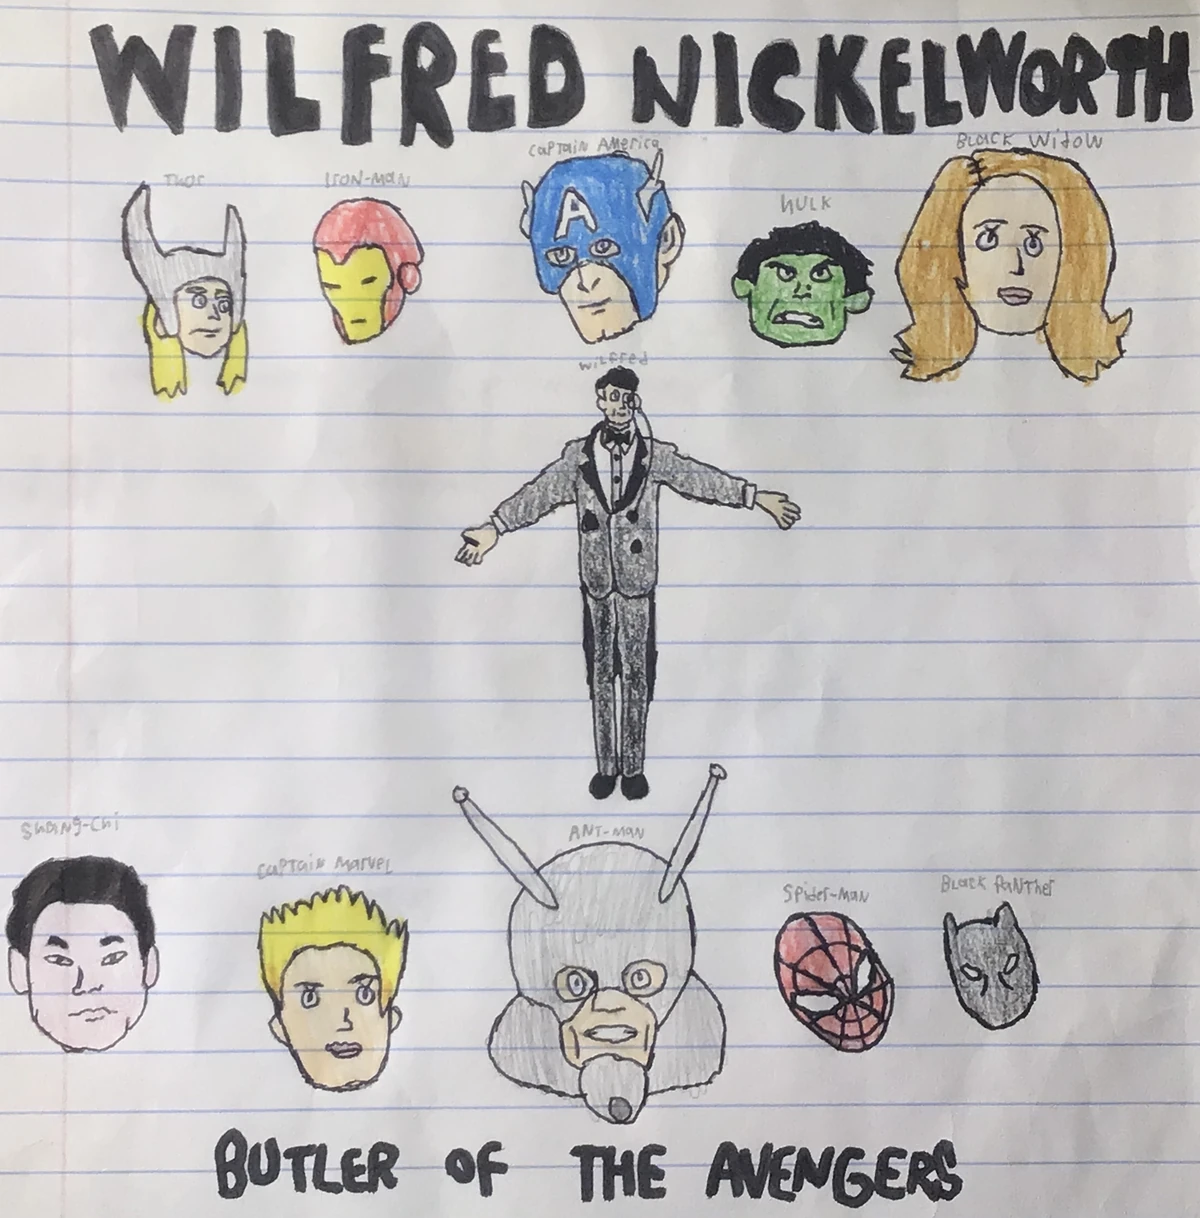 WILFRED NICKELWORTH
THOR
IRON-MAN
CAPTAIN AMERICA
A
HULK
BLACK WIDOW
WILFRED
SHANG-CHI
CAPTAIN MARVEL
ANT-MAN
SPIDER-MAN
BLACK PANTHER
BUTLER OF THE AVENGERS